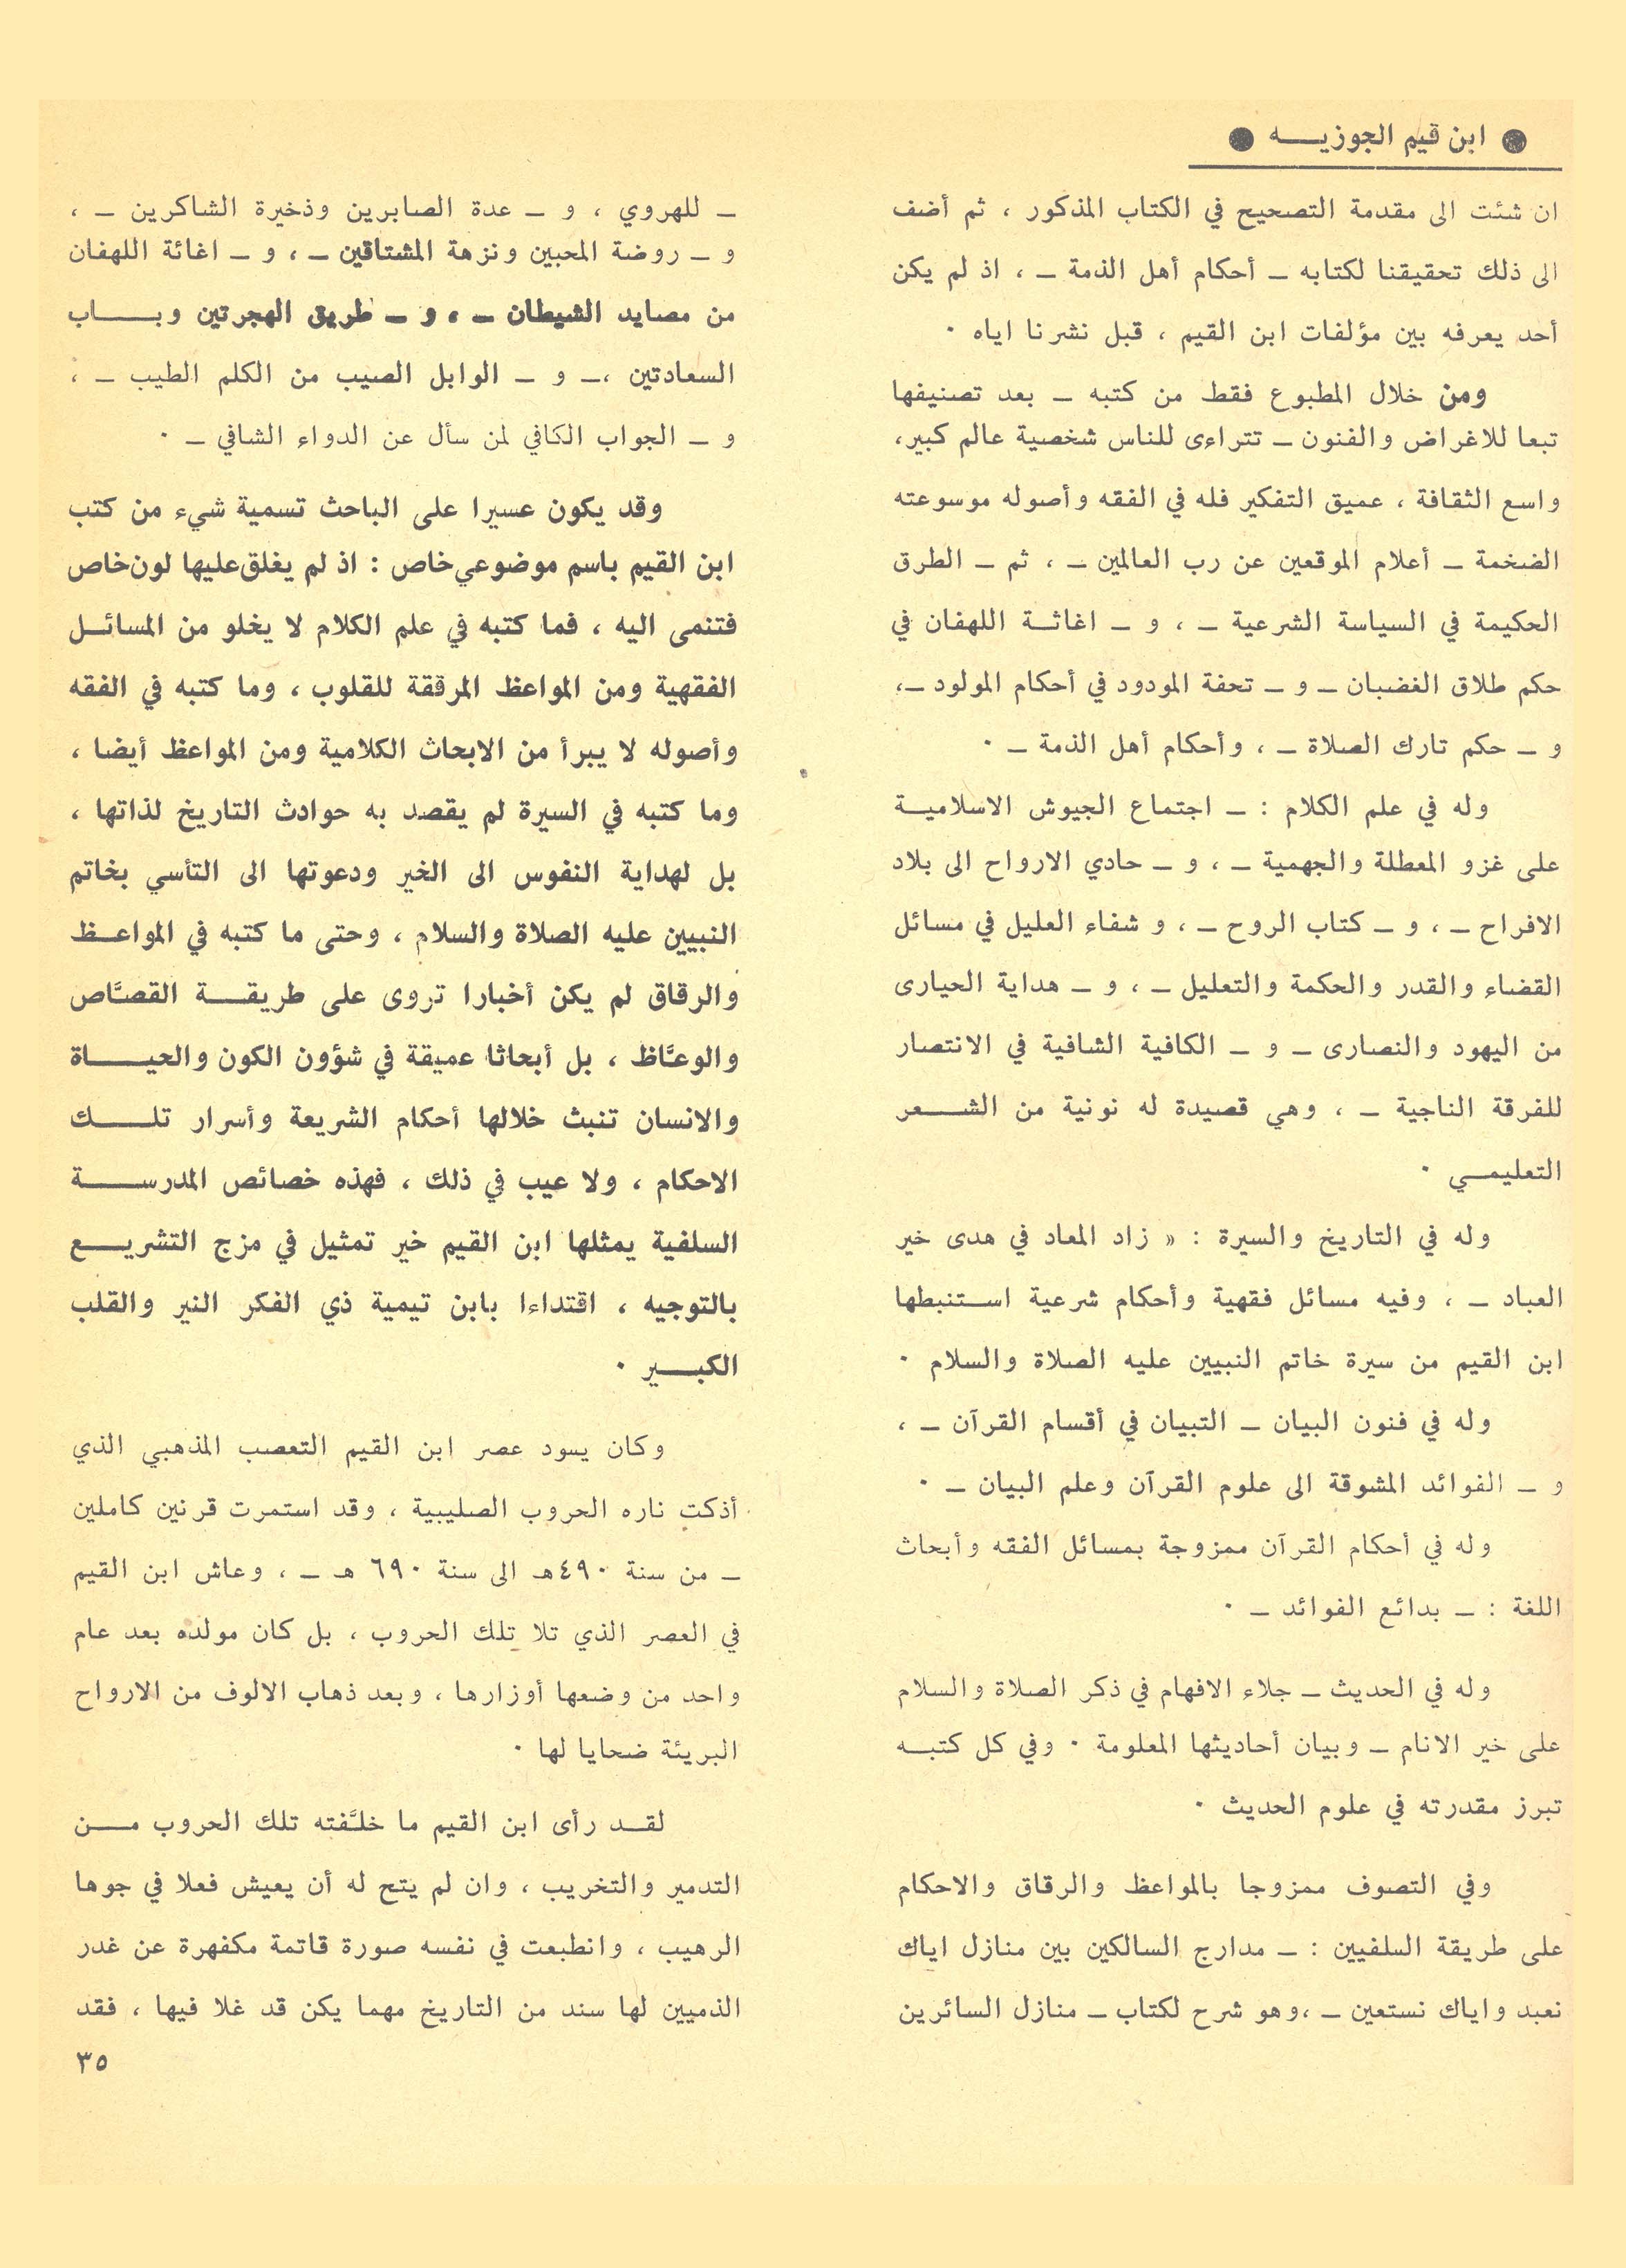 ● ابن قيم الجوزيــــه ●
ان شئت الى مقدمة التصحيح في الكتاب المذكور ، ثم أضف
الى ذلك تحقيقنا لكتابه ـ أحكام أهل الذمة ـ ، اذ لم يكن
أحد يعرفه بين مؤلفات ابن القيم ، قبل نشرنا اياه ٠
ومن خلال المطبوع فقط من كتبه ـ بعد تصنيفها
تبعا للاغراض والفنون ـ تتراءى للناس شخصية عالم كبير،
واسع الثقافة ، عميق التفكير فله في الفقه وأصوله موسوعته
الضخمة ـ أعلام الموقعين عن رب العالمين ـ ، ثم ـ الطرق
الحكيمة في السياسة الشرعية ـ ، و ـ اغاثــة اللهفان في
حكم طلاق الغضبان ـ و ـ تحفة المودود في أحكام المولود ـ،
و ـ حكم تارك الصلاة ـ ، وأحكام أهل الذمة ـ ٠
وله في علم الكلام : ـ اجتماع الجيوش الاسلاميــة
على غزو المعطلة والجهمية ـ ، و ـ حادي الارواح الى بلاد
الافراح ـ ، و ـ كتاب الروح ـ ، و شفاء العليل في مسائل
القضاء والقدر والحكمة والتعليل ـ ، و ـ هداية الحيارى
من اليهود والنصارى ـ و ـ الكافية الشافية في الانتصار
للفرقة الناجية ـ ، وهي قصيدة له نونية من الشــــعر
التعليمــي ٠
وله في التاريخ والسيرة : « زاد المعاد في هدى خير
العباد ـ ، وفيه مسائل فقهية وأحكام شرعية اســتنبطها
ابن القيم من سيرة خاتم النبيين عليه الصلاة والسلام ٠
وله في فنون البيان ـ التبيان في أقسام القرآن ـ ،
و ـ الفوائد المشوقة الى علوم القرآن وعلم البيان ـ ٠
وله في أحكام القرآن ممزوجة بمسائل الفقه وأبحاث
اللغة : ـ بدائع الفوائد ـ ٠
وله في الحديث ـ جلاء الافهام في ذكر الصلاة والسلام
على خير الانام ـ وبيان أحاديثها المعلومة ٠ وفي كل كتبــه
تبرز مقدرته في علوم الحديث ٠
وفي التصوف ممزوجا بالمواعظ والرقاق والاحكام
على طريقة السلفيين : ـ مدارج السالكين بين منازل اياك
نعبد واياك نستعين ـ ،وهو شرح لكتاب ـ منازل السائرين
ـ للهروي ، و ـ عدة الصابرين وذخيرة الشاكرين ـ ،
و ـ روضة المحبين ونزهة المشتاقين ـ ، و ـ اغاثة اللهفان
من مصايد الشيطان ـ ، و ـ طريق الهجرتين وبــــاب
السعادتين ،ـ و ـ الوابل الصيب من الكلم الطيب ـ ،
و ـ الجواب الكافي لمن سأل عن الدواء الشافي ـ ٠
وقد يكون عسيرا على الباحث تسمية شيء من كتب
ابن القيم باسم موضوعي خاص : اذ لم يغلق عليها لون خاص
فتنمى اليه ، فما كتبه في علم الكلام لا يخلو من المسائــل
الفقهية ومن المواعظ المرققة للقلوب ، وما كتبه في الفقه
وأصوله لا يبرأ من الابحاث الكلامية ومن المواعظ أيضا ،
وما كتبه في السيرة لم يقصد به حوادث التاريخ لذاتها ،
بل لهداية النفوس الى الخير ودعوتها الى التأسي بخاتم
النبيين عليه الصلاة والسلام ، وحتى ما كتبه في المواعــظ
والرقاق لم يكن أخبارا تروى على طريقـــة القصَّاص
والوعَّاظ ، بل أبحاثا عميقة في شؤون الكون والحيــــاة
والانسان تنبث خلالها أحكام الشريعة وأسرار تلــــك
الاحكام ، ولا عيب في ذلك ، فهذه خصائص المدرســــة
السلفية يمثلها ابن القيم خير تمثيل في مزج التشريـــع
بالتوجيه ، اقتداءا بابن تيمية ذي الفكر النير والقلب
الكبـــير ٠
وكان يسود عصر ابن القيم التعصب المذهبي الذي
أذكت ناره الحروب الصليبية ، وقد استمرت قرنين كاملين
ـ من سنة ٤٩٠هـ الى سنة ٦٩٠ هـ ـ ، وعاش ابن القيم
في العصر الذي تلا تلك الحروب ، بل كان مولده بعد عام
واحد من وضعها أوزارها ، وبعد ذهاب الالوف من الارواح
البريئة ضحايا لها ٠
لقــد رأى ابن القيم ما خلَّفته تلك الحروب مـــن
التدمير والتخريب ، وان لم يتح له أن يعيش فعلا في جوها
الرهيب ، وانطبعت في نفسه صورة قاتمة مكفهرة عن غدر
الذميين لها سند من التاريخ مهما يكن قد غلا فيها ، فقد
٣٥